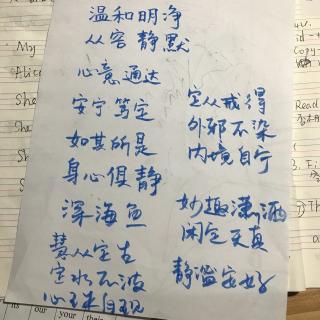 温和明净
从容静默
心意通达
安宁笃定
如其所是
身心俱静
深海鱼
慧从定生
定水不波
心 自现
定从戒得
外邪不染
内境自宁
妙趣潇洒
闲定天真
静谧安好
My
Alice
She
She
She
She
Read
is
our
their
Copy